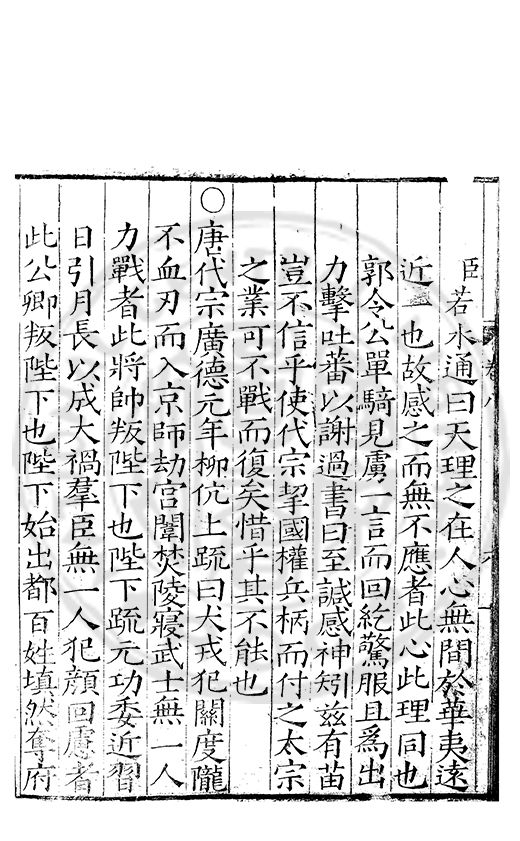 臣若水通曰天理之在人心無間於華夷遠
近一也故感之而無不應者此心此理同也
郭令公單騎見虜一言而回紇驚服且爲出
力擊吐蕃以謝過書曰至諴感神矧兹有苗
豈不信乎使代宗挈國權兵柄而付之太宗
之業可不戰而復矣惜乎其不能也
○唐代宗廣德元年柳伉上疏曰犬戎犯關度隴
不血刃而入京師劫宮闈焚陵寢武士無一人
力戰者此將帥叛陛下也陛下疏元功委近習
日引月長以成大禍羣臣無一人犯顔回慮者
此公卿叛陛下也陛下始出都百姓填然奪府
卷八